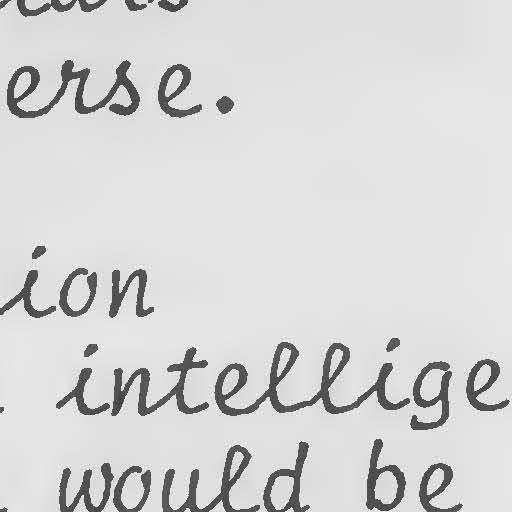 erse.
ion
intellige
would be